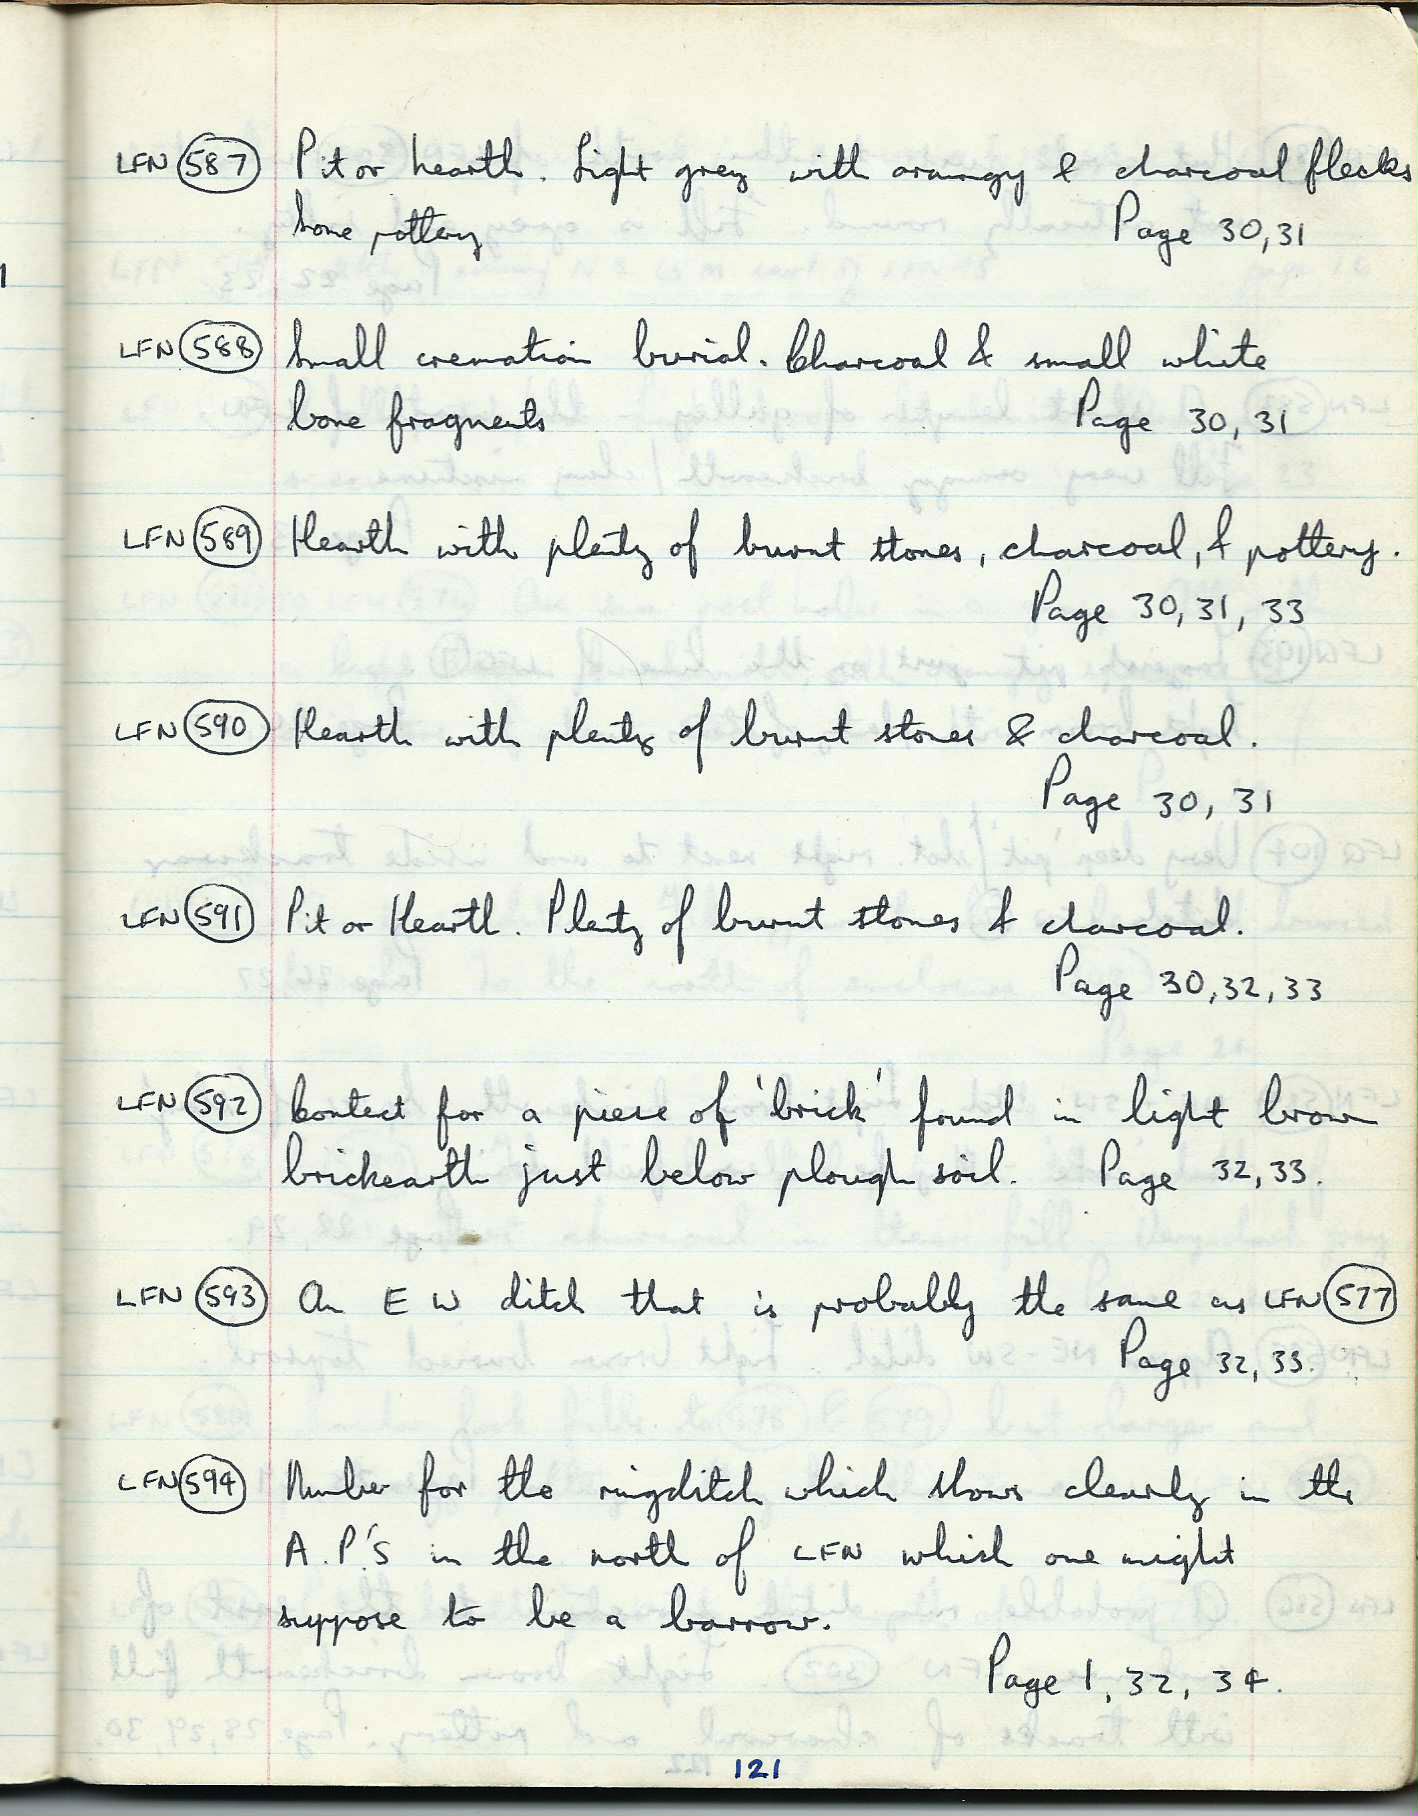 LFN 587 Pit or hearth. Light grey with orangy & charcoal flecks
Some pottery Page 30,31
LFN 588 Small cremation burial. Charcoal & small white
bone fragments Page 30, 31
LFN 589 Hearth with plenty of burnt stones, charcoal, & pottery.
Page 30, 31, 33
LFN 590 Hearth with plenty of burnt stones & charcoal.
Page 30, 31
LFN 591 Pit or Hearth. Plenty of burnt stones & charcoal.
Page 30,32,33
LFN 592 Context for a piece of 'brick' found in light brown
brickearth just below plough soil. Page 32,33.
LFN 593 An E W ditch that is probably the same as LFN 577
Page 32,33.
LFN 594 Number for the ringditch which shows clearly in the
A.P.'S in the north of LFN which one might
suppose to be a barrow.
Page 1, 32, 34.
121